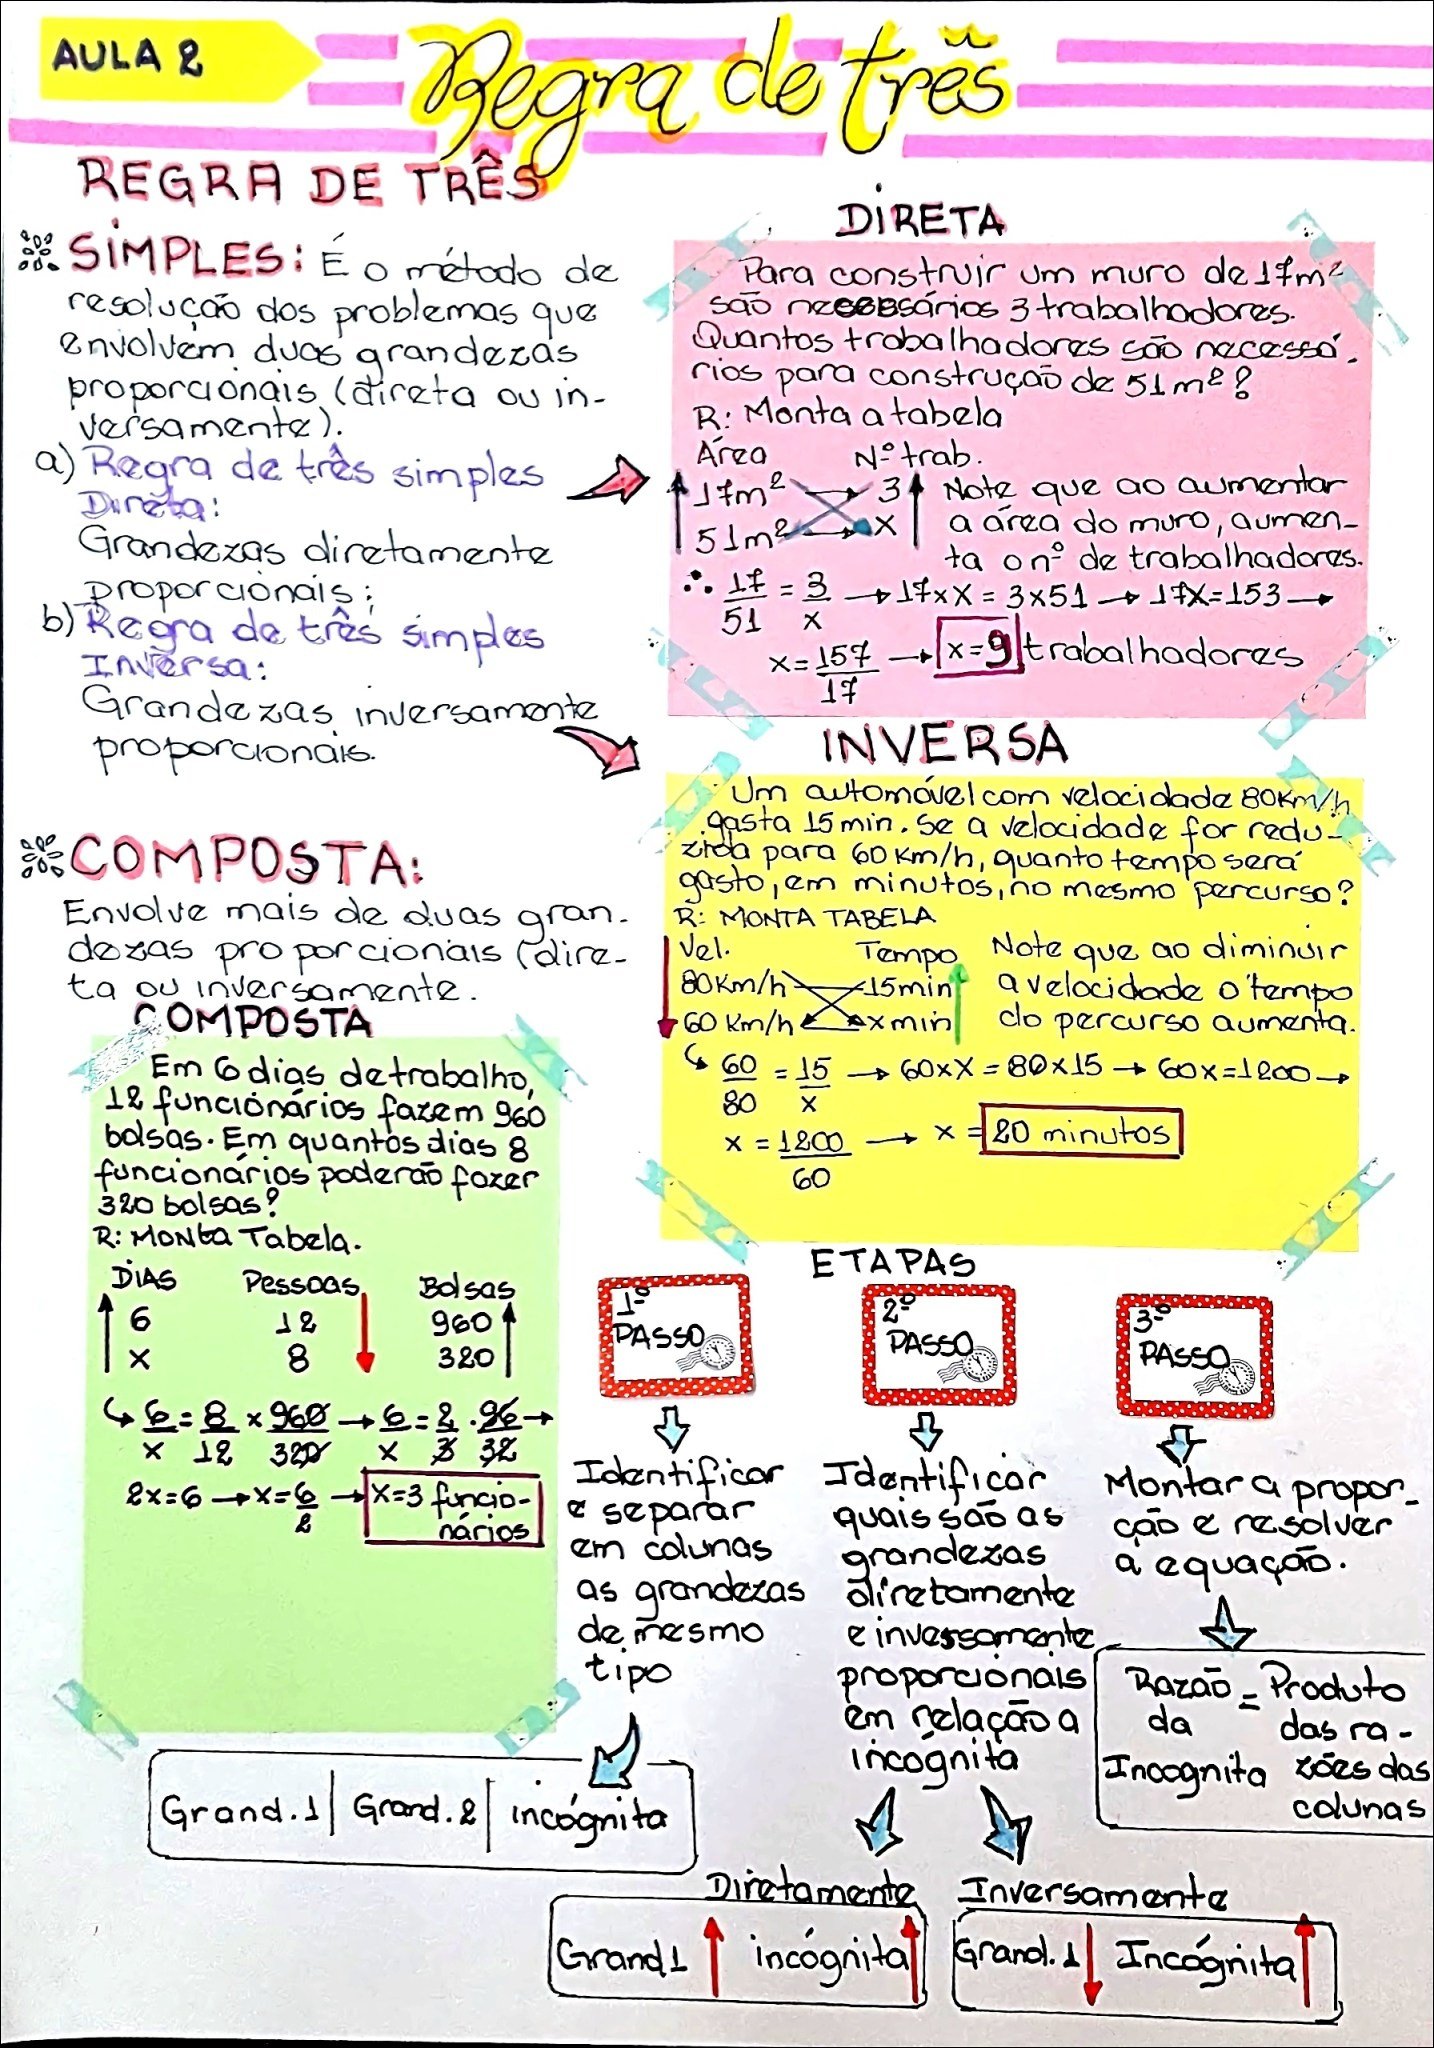 AULA 2
Regra de três
REGRA DE TRÊS
SIMPLES: É o método de
resolução dos problemas que
envolvem duas grandezas
proporcionais (direta ou in-
versamente).
a) Regra de três simples
Direta:
Grandezas diretamente
proporcionais;
b) Regra de três simples
Inversa:
Grandezas inversamente
proporcionais.
DIRETA
Para construir um muro de 17m²
são necessários 3 trabalhadores.
Quantos trabalhadores são necessá-
rios para construção de 51m²?
R: Monta a tabela
Área Nº trab.
17m² 3
51m² x
Note que ao aumentar
a área do muro, aumen-
ta o nº de trabalhadores.
∴ 17/51 = 3/x → 17xX = 3x51 → 17X=153 →
x=157/17 → x=9 trabalhadores
INVERSA
Um automóvel com velocidade 80Km/h
gasta 15min. Se a velocidade for redu-
zida para 60Km/h, quanto tempo será
gasto, em minutos, no mesmo percurso?
R: MONTA TABELA
Vel. Tempo
80Km/h 15min
60 Km/h x min
Note que ao diminuir
a velocidade o tempo
do percurso aumenta.
60/80 = 15/x → 60xX = 80x15 → 60x=1200 →
x = 1200/60 → x = 20 minutos
COMPOSTA:
Envolve mais de duas gran-
dezas proporcionais (dire-
ta ou inversamente.
COMPOSTA
Em 6 dias de trabalho,
12 funcionários fazem 960
bolsas. Em quantos dias 8
funcionários poderão fazer
320 bolsas?
R: Monta Tabela.
DIAS Pessoas Bolsas
6 12 960
x 8 320
6/x = 8/12 x 960/320 → 6/x = 2/3 . 96/32 →
2x=6 → x=6/2 → x=3 funcio-
nários
ETAPAS
1º
PASSO
Identificar
e separar
em colunas
as grandezas
de mesmo
tipo
Grand.1 | Grand.2 | incógnita
2º
PASSO
Identificar
quais são as
grandezas
diretamente
e inversamente
proporcionais
em relação a
incógnita
Diretamente
Grand1 incógnita
Inversamente
Grand.1 Incógnita
3º
PASSO
Montar a propor-
ção e resolver
a equação.
Razão = Produto
da das ra-
Incognita zões das
colunas